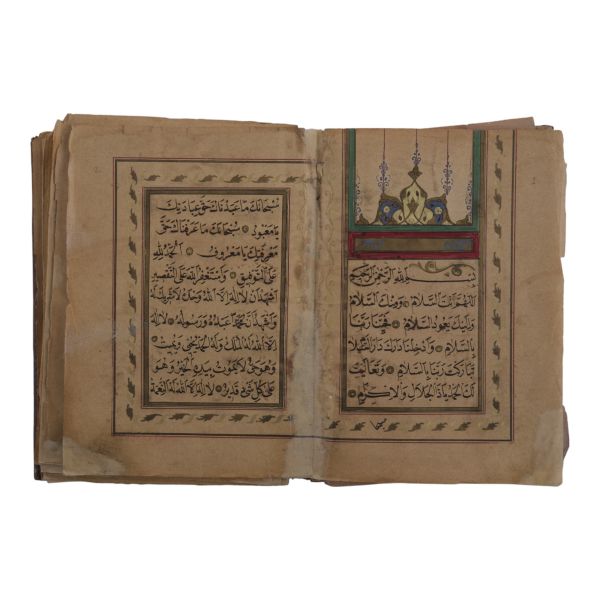 بسم الله الرحمن الرحيم
اللهم انت السلام ومنك السلام
واليك يعود السلام فحينا ربنا
بالسلام وادخلنا دارك دار السلام
تباركت ربنا بالسلام وتعاليت
لك الحمد ياذا الجلال والاكرام
سبحانك ما عبدناك حق عبادتك
يا معبود سبحانك ما عرفناك حق
معرفتك يا معروف الحمد لله
على التوفيق واستغفر الله على التقصير
اشهد ان لا اله الا الله وحده لا شريك له
واشهد ان محمدا عبده ورسوله لا اله
الا الله له الملك وله الحمد يحيي ويميت
وهو حي لا يموت بيده الخير وهو
على كل شيء قدير لا اله الا الله له النعمة